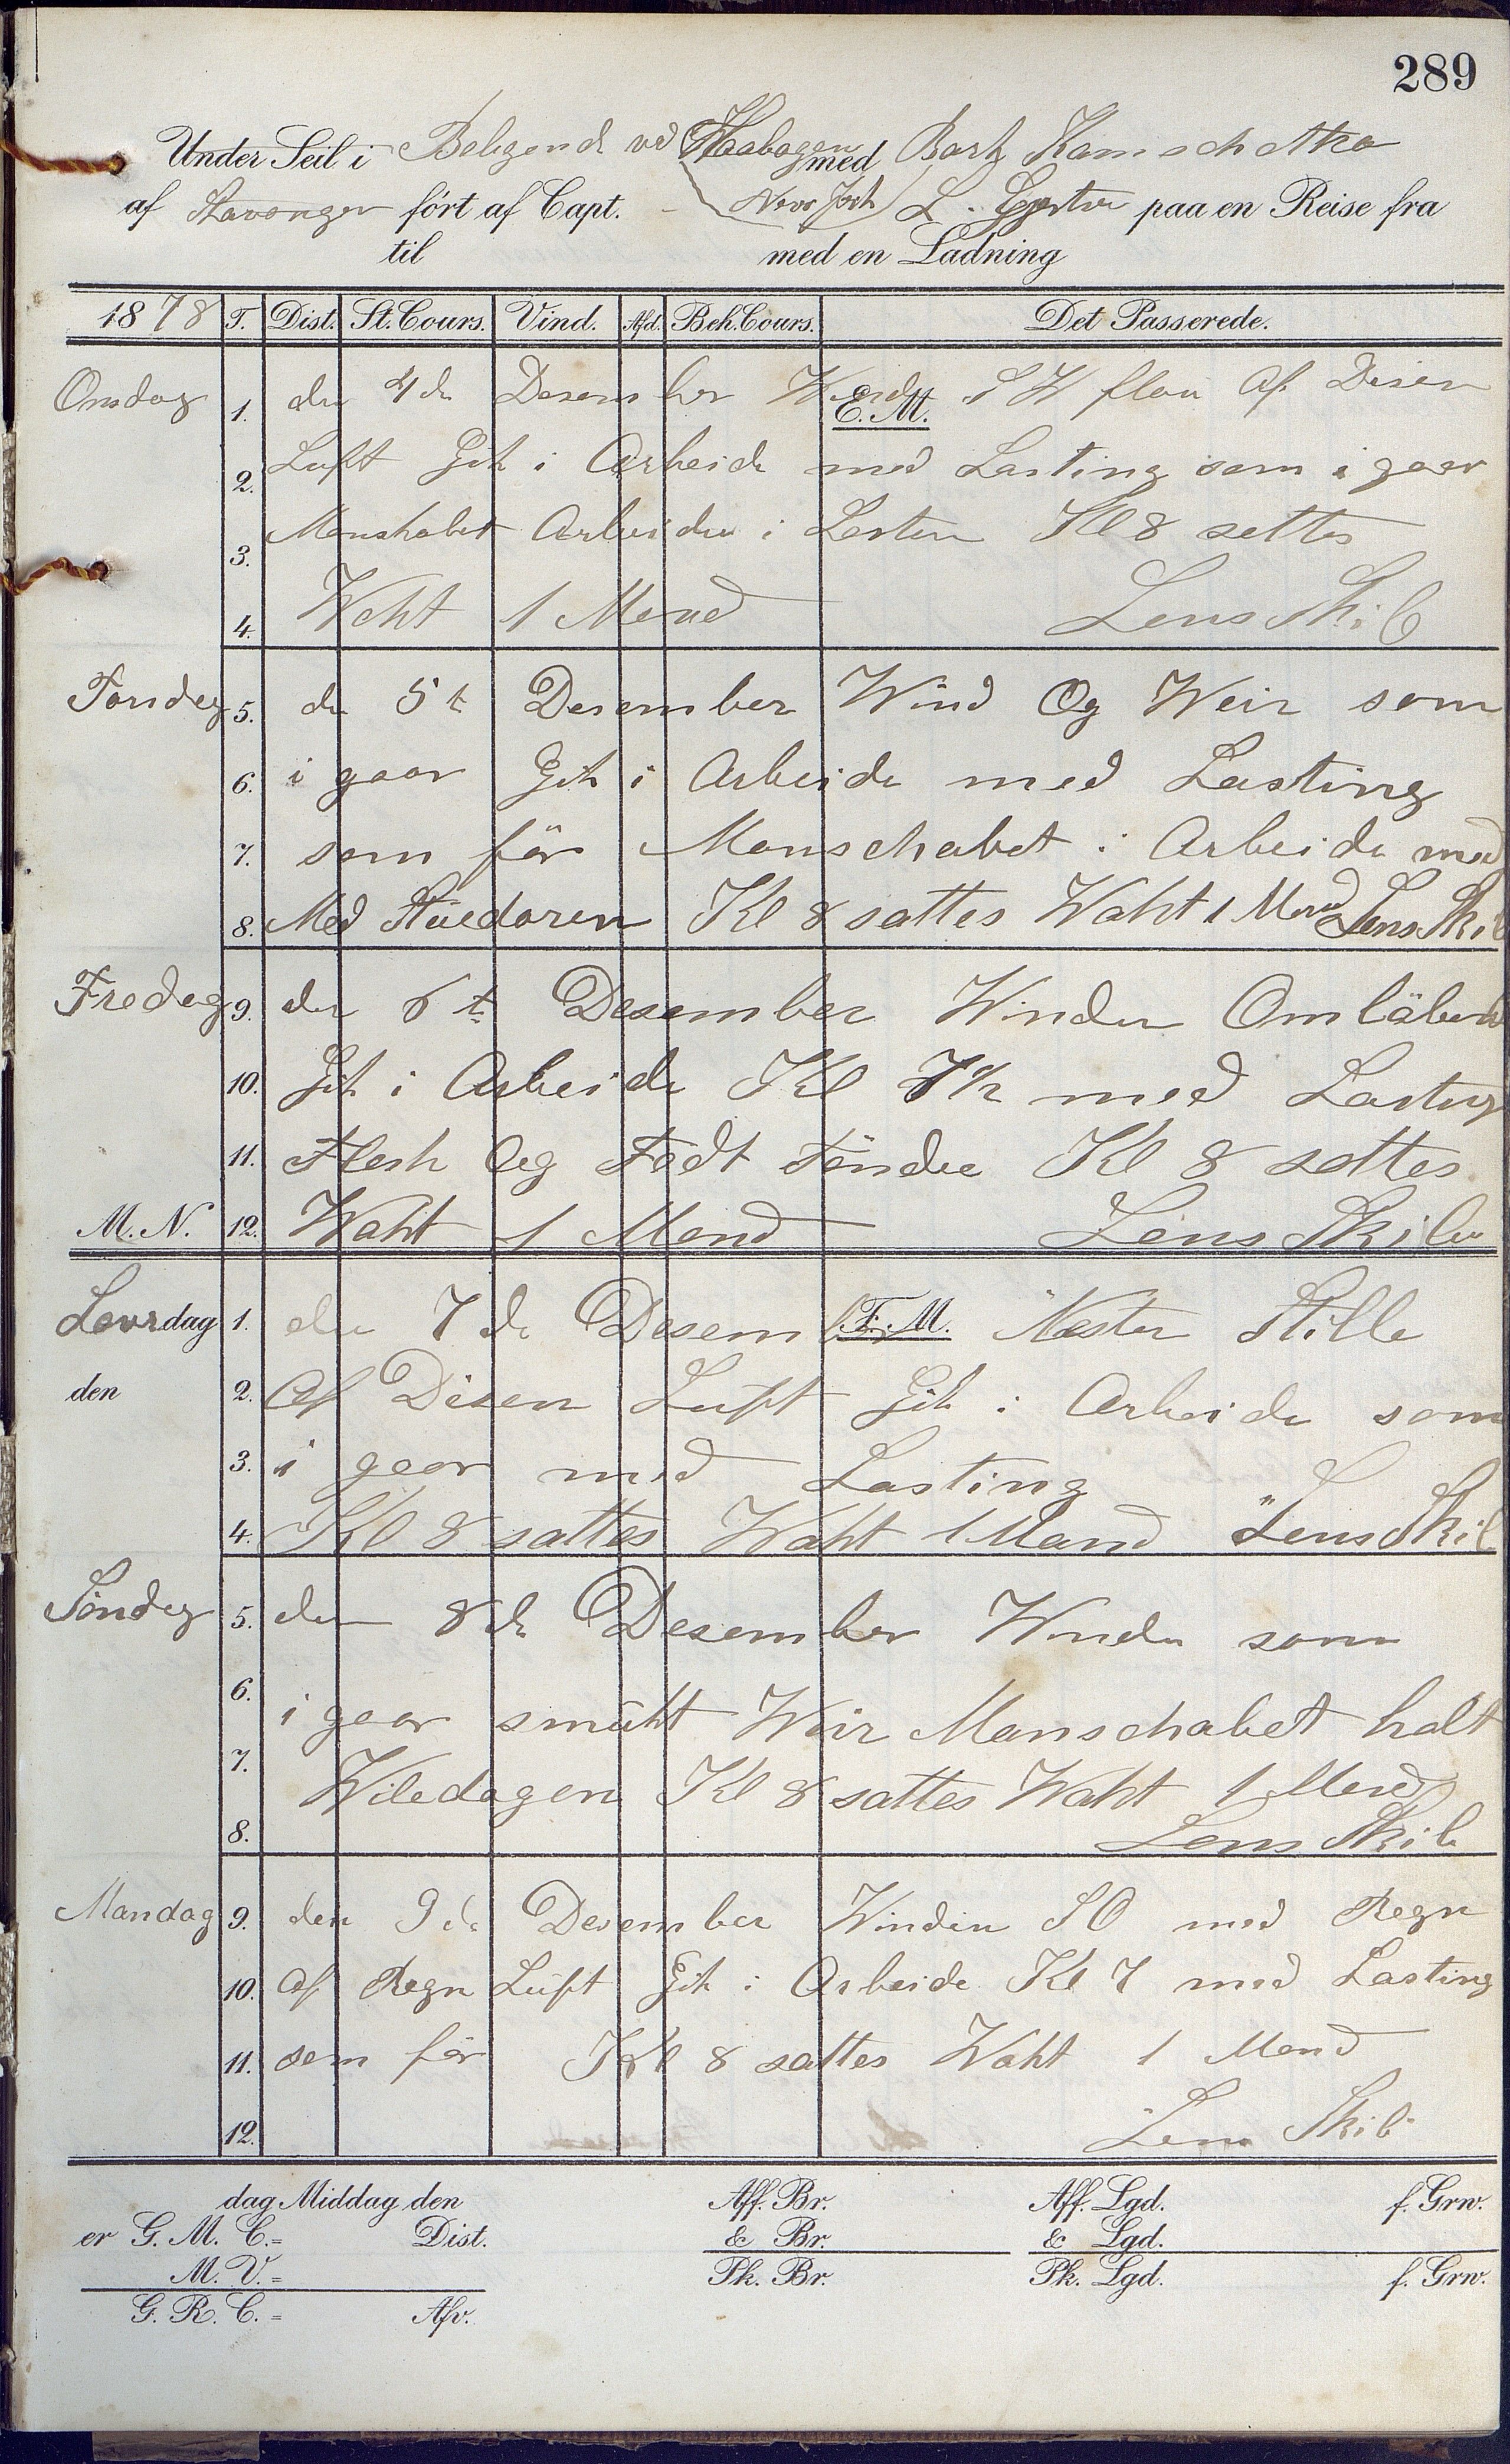 289
Under Seil i Beligende ved Haabogen med Bark Kamschatka
af Stavanger ført af Capt. New York L. paa en Reise fra
til med en Ladning
1878 T. Dist. St. Cours. Vind. Afd. Beh. Cours. Det Passerede.
Onsdag 1. den 4de Desember Winden E.M. S W flau Af Disen
2. Luft Gik i Arbeide med Lasting som i gaar
3. Manskabet Arbeider i Lasten Kl 8 settes
4. Waht 1 Mand Lens Skib
Torsdag 5. den 5te Desember Wind Og Weir som
6. i gaar Gik i Arbeide med Lasting
7. som för Manschabet i Arbeide med
8. Med Stüedoren Kl 8 sattes Waht 1 Mand Lens Skib
Fredag 9. den 6te Desember Winden Omlöbend
10. Gik i Arbeide Kl 7½ med Lasting
11. Flesk Og Fadt Tönder Kl 8 sattes
M. N. 12. Waht 1 Mand Lens Skib
Lövrdag 1. den 7de Desember F. M. Næsten Stille
den 2. Af Disen Luft Gik i Arbeide som
3. i gaar med Lasting
4. Kl 8 sattes Waht 1 Mand Lens Skib
Söndag 5. den 8de Desember Winden som
6. i gaar smukt Weir Manschabet halt
7. Wiledagen Kl 8 sattes Waht 1 Mand
8. Lens Skib
Mandag 9. den 9de Desember Winden S O med Regn
10. Af Regn Luft Gik i Arbeide Kl 7 med Lasting
11. som för Kl 8 sattes Waht 1 Mand
12. Lens Skib
dag Middag den Aff. Br. Aff. Lgd. f. Grw.
er G. M. C.= Dist. & Br. & Lgd.
M. V.= Pk. Br. Pk. Lgd. f. Grw.
G. R. C.= Afv.